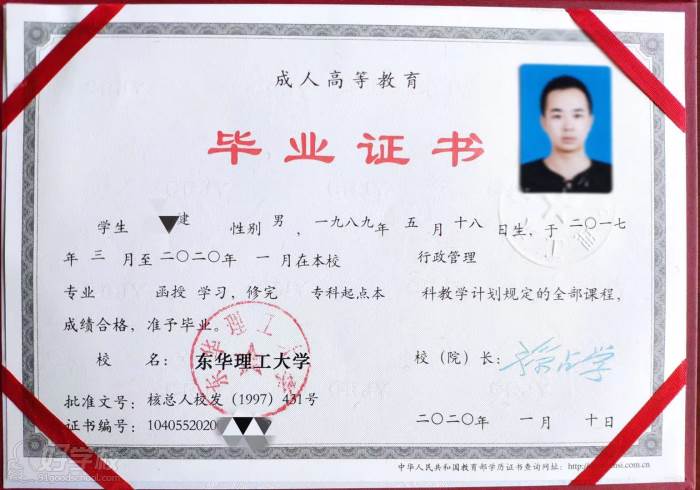 成人高等教育
毕业证书
学生 建 性别 男 ，一九八九年 五 月 十八 日生，于 二〇一七
年 三 月至 二〇二〇年 一 月在本校 行政管理
专业 函授 学习，修完 专科起点本 科教学计划规定的全部课程，
成绩合格，准予毕业。
校 名： 东华理工大学 校（院）长：
批准文号：核总人校发（1997）431号
证书编号：1040552020 二〇二〇年 一 月 十 日
中华人民共和国教育部学历证书查询网址：
好学校
91goodschool.com